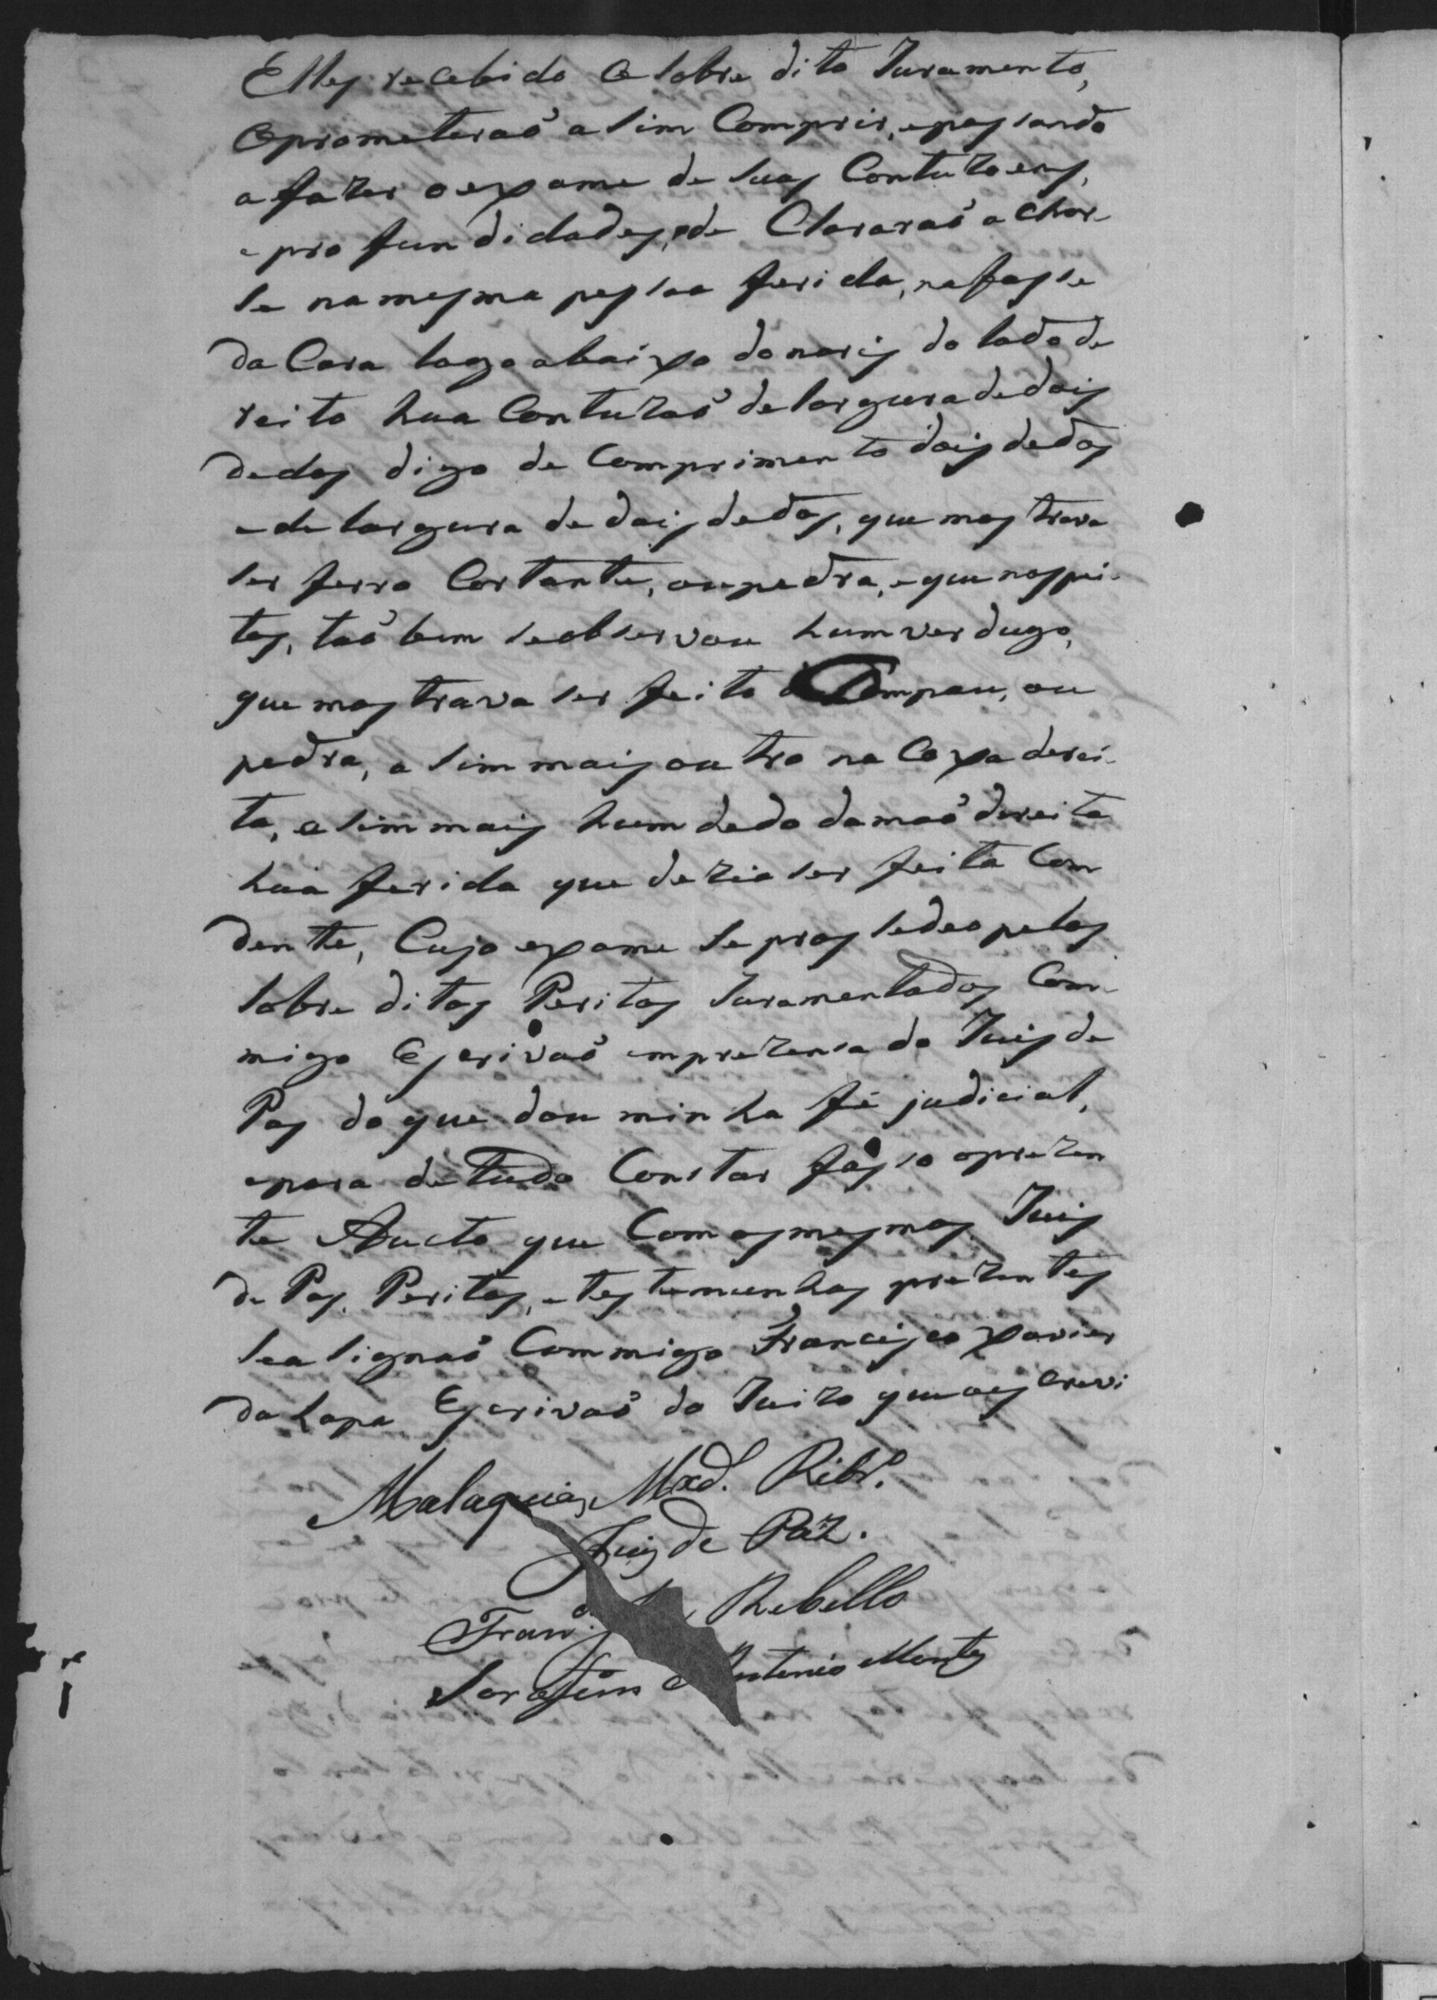 Elles recebido o sobre dito Juramento,
e prometeraõ a sim Comprir, e passando
a fazer o exame de suas Contuzoens,
e pro fun didades, de Clararaõ a char-
se na mesma pessoa ferida, na fasse
da Cara logo abaixo do naris do lado de
reito hua Contuzaõ de largura de dois
dedos digo de Comprimento dois dedos
e de largura de dois dedos, que mostrava
ser ferro Cortante, ou pedra, e que nos pei-
tos, taõ bem se observou hum verdugo,
que mostrava ser feito Com pau, ou
pedra, a sim mais outro na Coxa derei-
ta, e sim mais hum dedo da maõ direita
hua ferida que dezia ser feita Com
dente, Cujo exame se prossedeo pelos
sobre ditos Peritos Juramentados Com-
migo Escrivaõ em prezensa do Juis de
Pas do que dou minha fé judicial,
e para de tudo Constar fasso o prezen
te Aucto que Com os mesmos Juis
de Pas, Peritos, e testemunhas prezentes
se a signaõ Commigo Francisco Xavier
da Lapa Escrivaõ do Juizo que o escrevi
Malaquias Mxd.º Ribr.º
Juis de Paz.
Fran.co Rebello
Serafim Antonio Montes